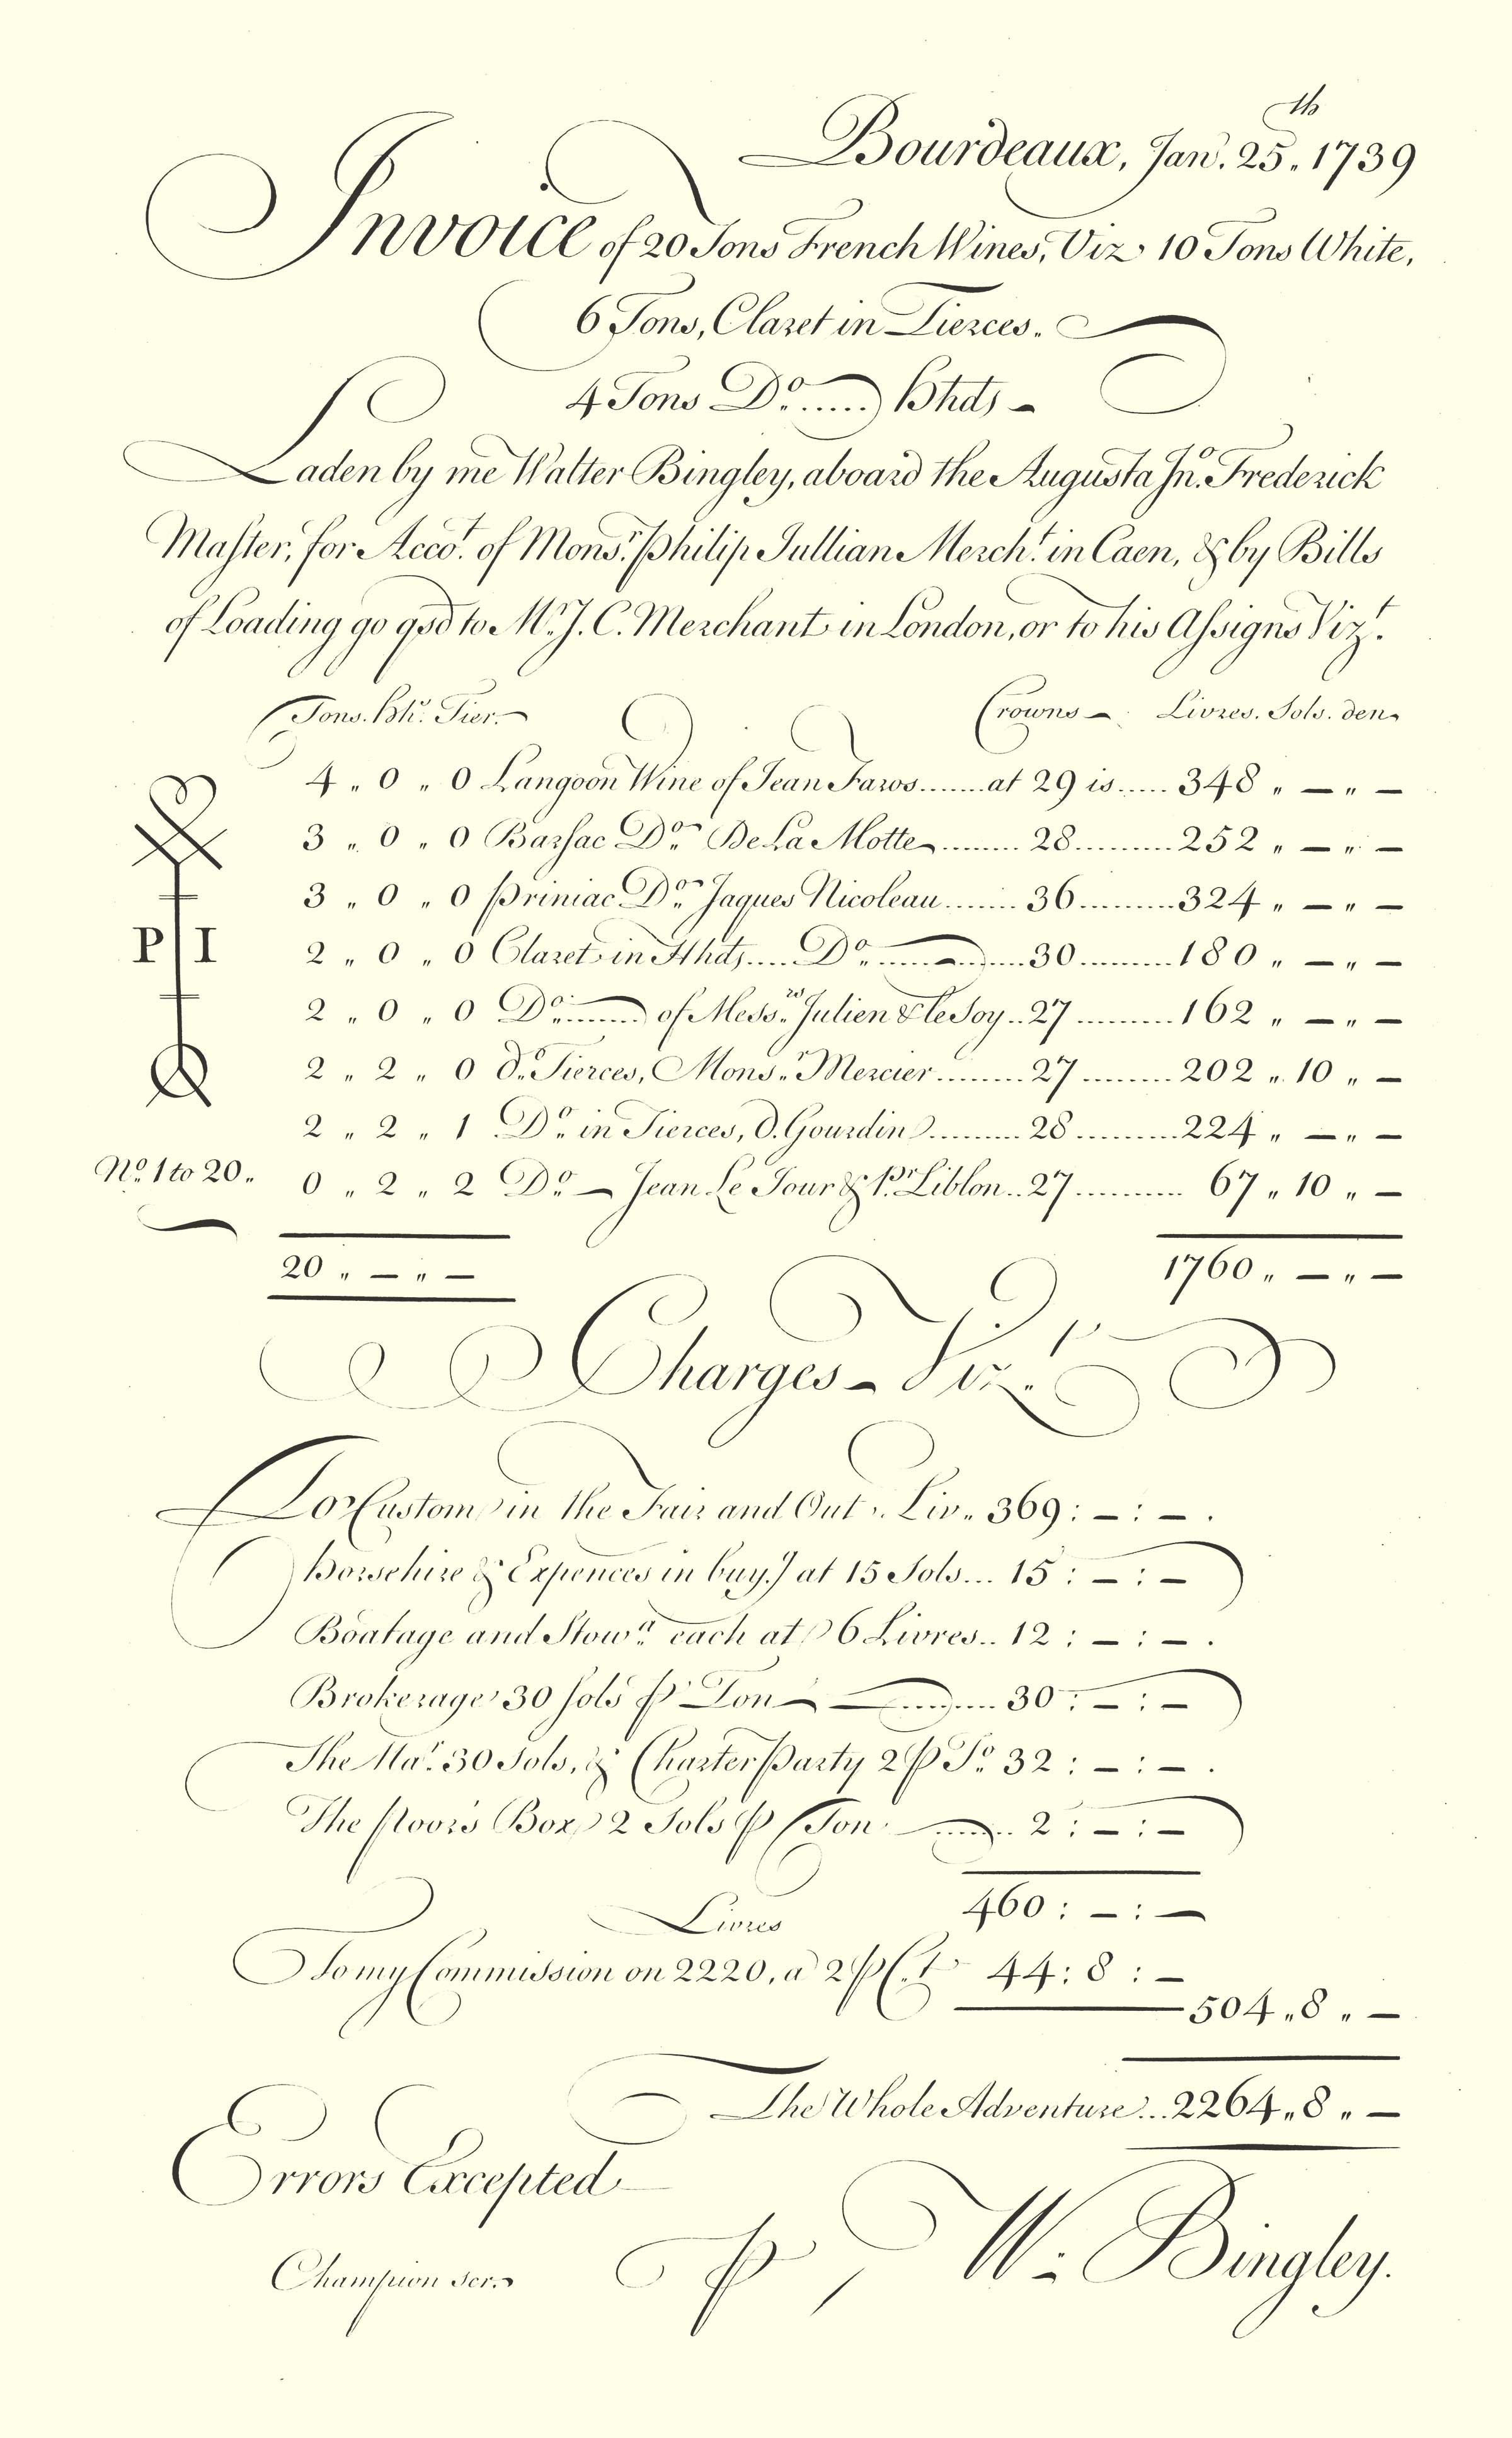 Bourdeaux, Janʸ. 25ᵗʰ. 1739
Invoice of 20 Tons French Wines, Viz 10 Tons White,
6 Tons, Claret in Tierces.
4 Tons Dº ..... Hhds –
Laden by me Walter Bingley, aboard the Augusta Jnº. Frederick
Maſter, for Accoᵗ. of Monsʳ. Philip Jullian Merchᵗ. in Caen, & by Bills
of Loading go qsd to Mʳ. J. C. Merchant in London, or to his Aſsigns Vizᵗ.
Tons. Hhˢ. Tier. Crowns – Livres. Sols. den
4 „ 0 „ 0 Langoon Wine of Jean Faros ...... at 29 is ..... 348 „ – „ –
3 „ 0 „ 0 Barsac Dº. De La Motte ........ 28 ......... 252 „ – „ –
3 „ 0 „ 0 Priniac Dº. Jaques Nicoleau ....... 36 ......... 324 „ – „ –
P I
2 „ 0 „ 0 Claret in Hhds ..... Dº ........ 30 ......... 180 „ – „ –
2 „ 0 „ 0 Dº ....... of Messʳˢ. Julien & le Soy .. 27 ......... 162 „ – „ –
2 „ 2 „ 0 dº. Tierces, Monsʳ. Mercier ........ 27 ......... 202 „ 10 „ –
2 „ 2 „ 1 Dº. in Tierces, d. Gourdin ......... 28 ......... 224 „ – „ –
Nº. 1 to 20. 0 „ 2 „ 2 Dº – Jean Le Tour & Pʳ. Liblon .. 27 .......... 67 „ 10 „ –
20 „ – „ – 1760 „ – „ –
Charges – Vizᵗ.
For Custom in the Fair and Out „ Liv „ 369 : – : – .
Horsehire & Expences in buy.g at 15 Sols ... 15 : – : –
Boatage and Stowᵃ. each at 6 Livres .. 12 : – : – .
Brokerage 30 ſols ⅌ Ton ...... 30 : – : –
The Maʳ. 30 Sols, & Charter Party 2 ⅌ Tº. 32 : – : – .
The Poor's Box 2 Sols ⅌ Ton ...... 2 : – : –
460 : – : –
Livres
To my Commission on 2220, a 2 ⅌ C.ᵗ 44 : 8 : –
504 „ 8 „ –
The Whole Adventure ... 2264 „ 8 „ –
Errors Excepted
⅌ W. Bingley.
Champion scr.